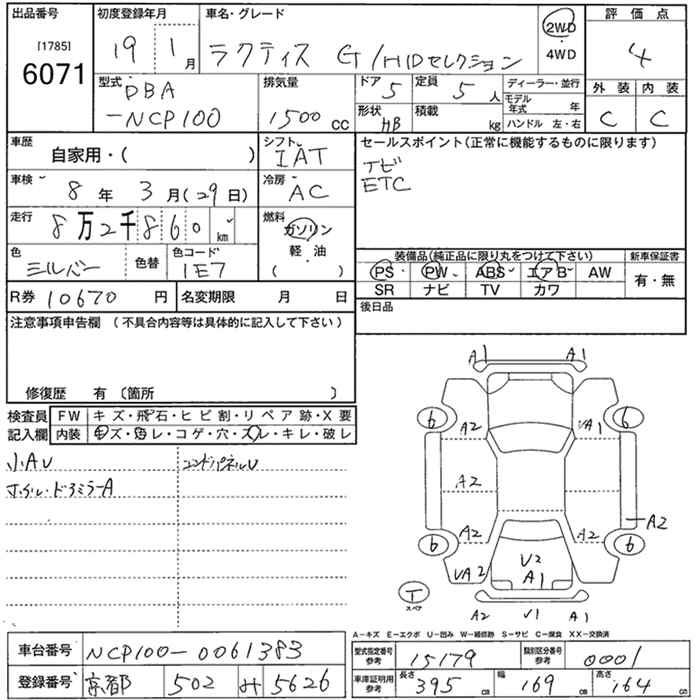 出品番号 初度登録年月 車名・グレード 評価点
[1785] 6071 19 1月 ラクティス G/HIDセレクション 2WD 4WD 4
型式 DBA -NCP100 排気量 1500cc ドア 5 定員 5人 ディーラー・並行 外装 内装
形状 HB 積載 kg モデル年式 年 ハンドル 左・右 C C
車歴 自家用・( ) シフト IAT セールスポイント(正常に機能するものに限ります)
車検 8年 3月(29日) 冷房 AC ナビ
ETC
走行 8万2千860km 燃料 ガソリン 軽・油 ( )
色 シルバー 色替 色コード 1E7 装備品(純正品に限り丸をつけて下さい) 新車保証書
PS PW ABS エアB AW 有・無
SR ナビ TV カワ
R券 10670円 名変期限 月 日 後日品
注意事項申告欄 (不具合内容等は具体的に記入して下さい)
修復歴 有 〔箇所 〕
検査員 FW キズ・飛石・ヒビ割・リペア跡・X要
記入欄 内装 キズ・汚レ・コゲ・穴・スレ・キレ・破レ
小AU エンドパネルU
ホイル・ドアミラーA
A1 A1
6 A2 UA1 6
A2
A2
6 A2 A2 6
UA2 U2
A1
T
スペア
A2 U1 A1
A-キズ E-エクボ U-凹み W-補修跡 S-サビ C-腐食 XX-交換済
車台番号 NCP100-0061383 型式指定番号 参考 15179 類別区分番号 参考 0001
登録番号 京都 502 み 5626 車庫証明用 参考 長さ 395cm 幅 169cm 高さ 164cm